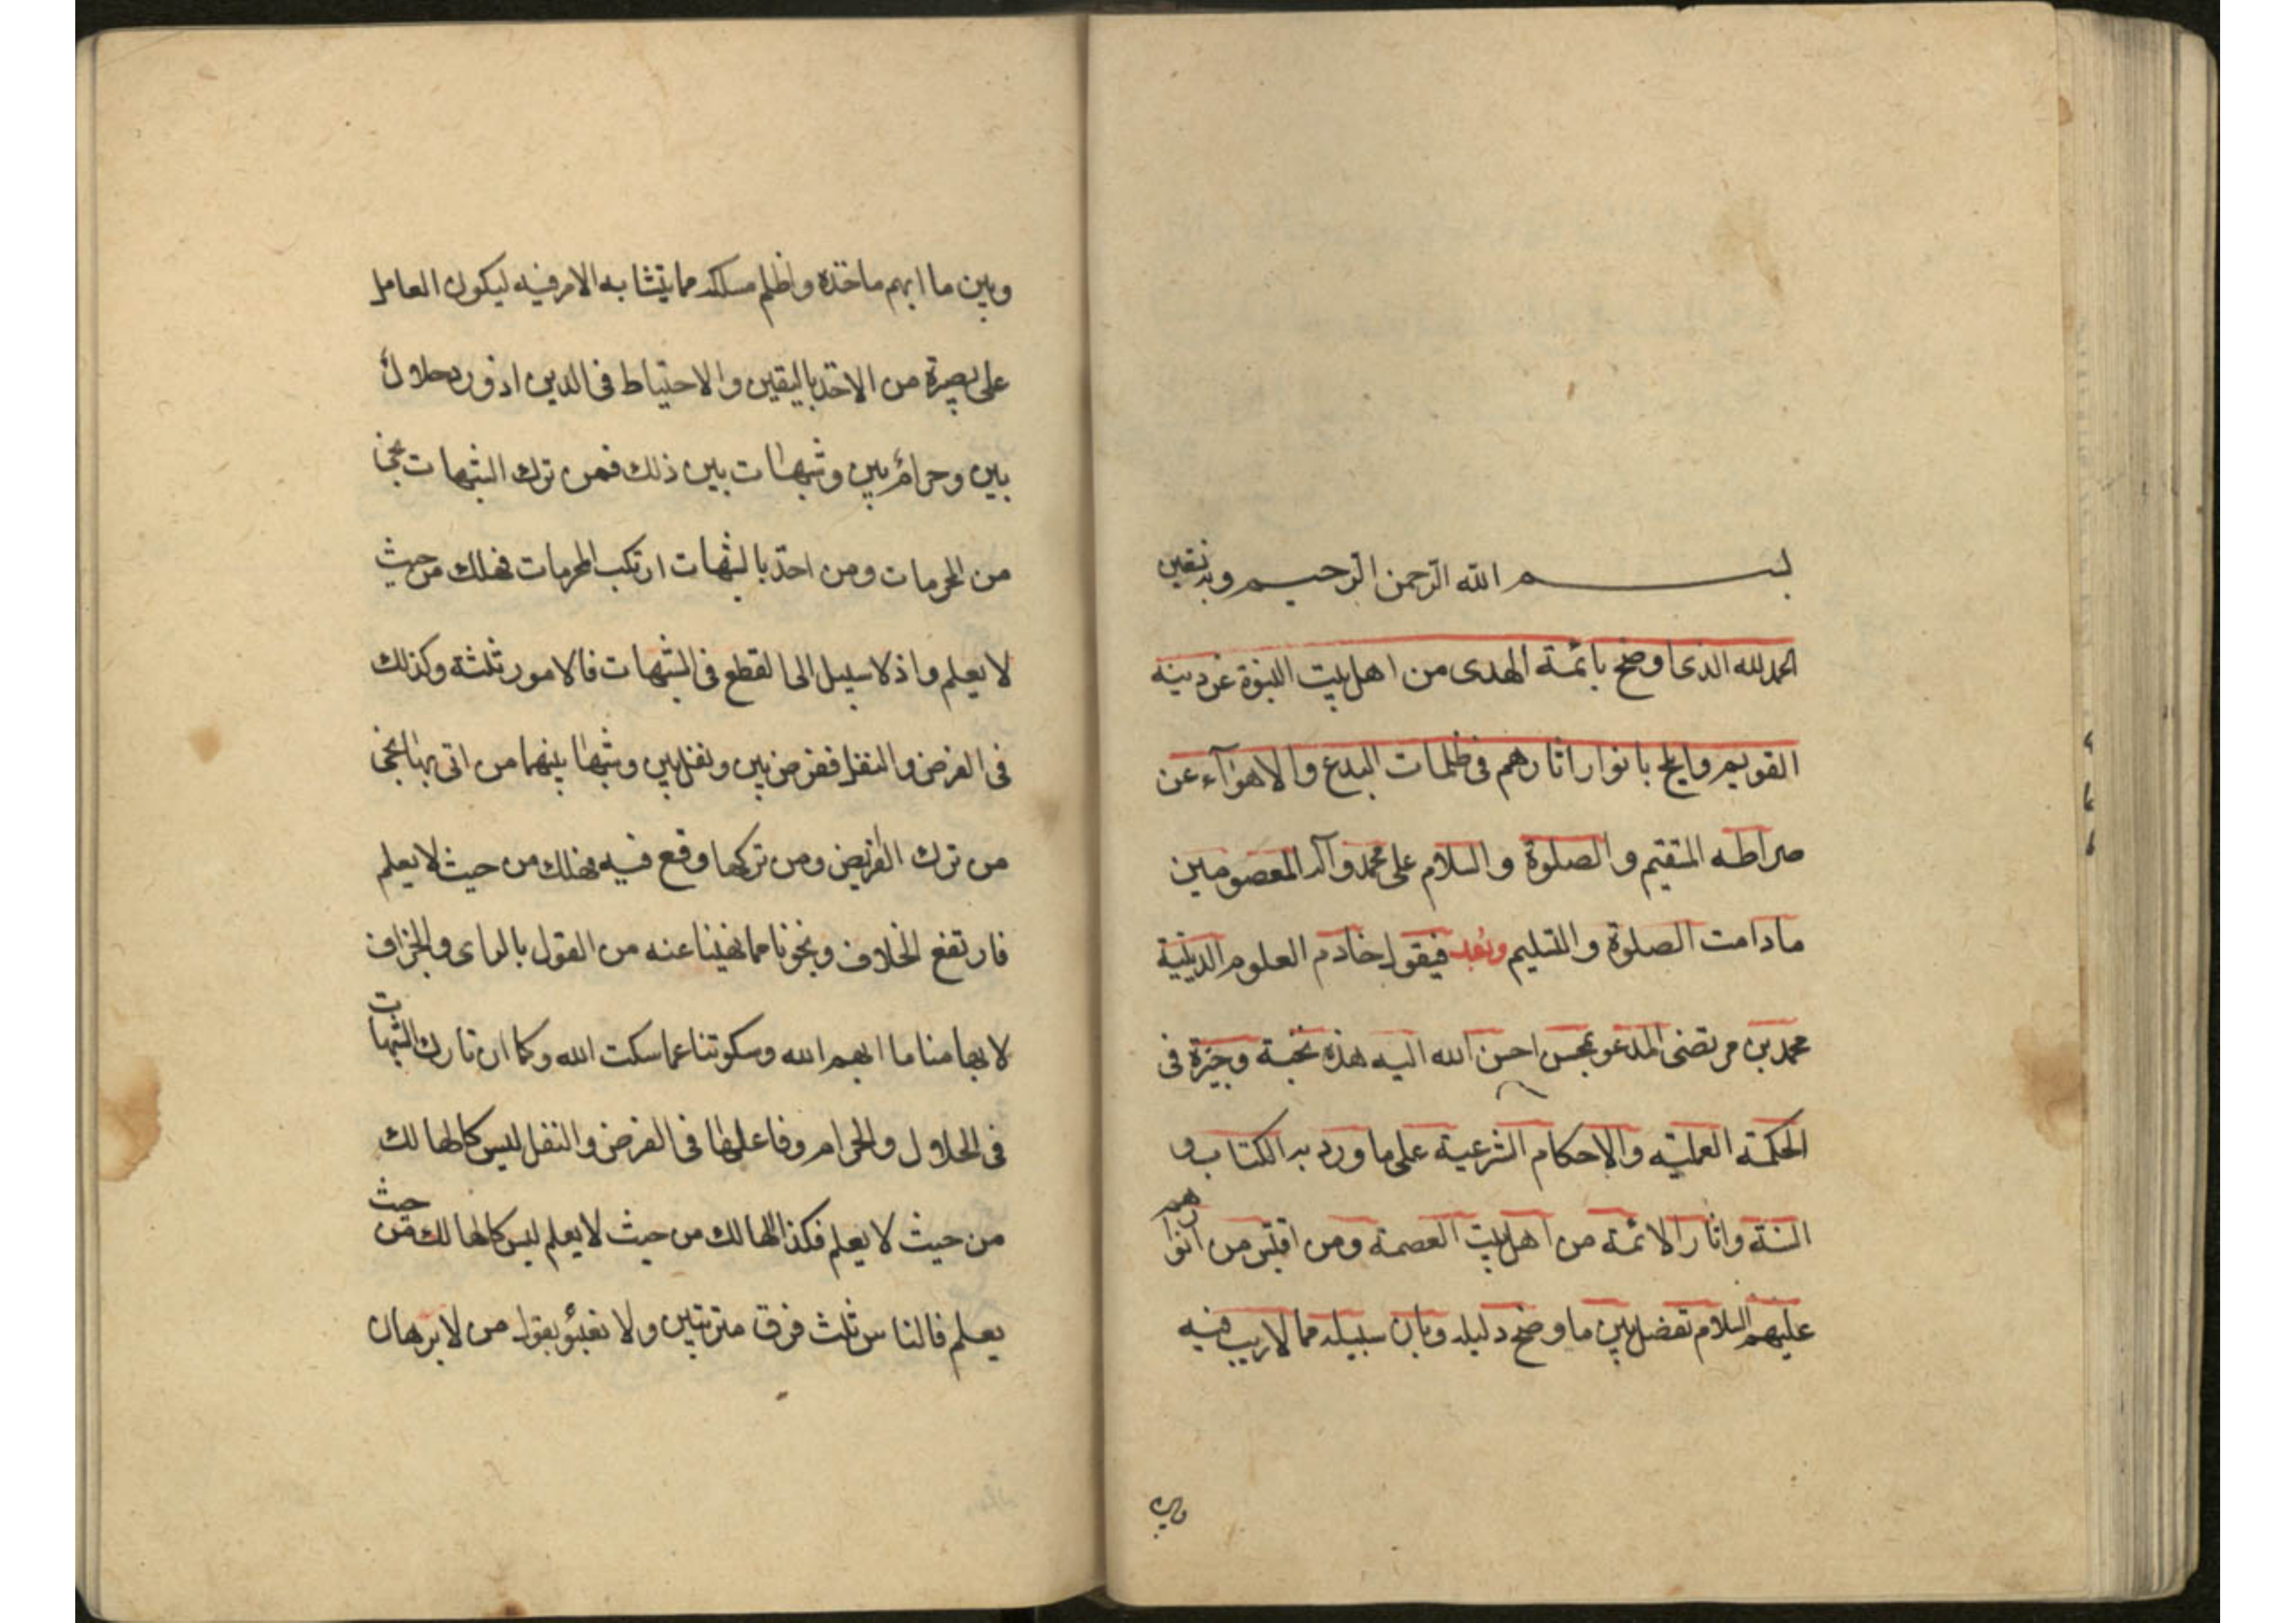 بسم الله الرحمن الرحيم وبه نستعين
الحمد لله الذى اوضح بائمة الهدى من اهل بيت النبوة عن دينه
القويم وابلج بانوار اثارهم فى ظلمات البدع والاهوآء عن
صراطه المستقيم والصلوة والسلام على محمد وآله المعصومين
ما دامت الصلوة والتسليم وبعد فيقول خادم العلوم الدينية
محمد بن مرتضى المدعو بمحسن احسن الله اليه هذه نخبة وجيزة فى
الحكمة العملية والاحكام الشرعية على ما ورد به الكتاب و
السنة واثار الائمة من اهل بيت العصمة ومن اقتبس من انوارهم
عليهم السلام تفصل بين ما وضح دليله وبان سبيله مما لا ريب فيه
وبين
وبين ما ابهم ماخذه واظلم مسلكه مما يتشابه الامر فيه ليكون العامل
على بصيرة من الاخذ باليقين والاحتياط فى الدين اذ ورد حلال
بين وحرام بين وشبهات بين ذلك فمن ترك الشبهات نجى
من المحرمات ومن اخذ بالشبهات ارتكب المحرمات فهلك من حيث
لا يعلم واذ لا سبيل الى القطع فى الشبهات فالامور ثلثة وكذلك
فى الفرض والنفل ففرض بين ونفل بين وشبهات بينهما من اتى بها نجى
من ترك الفرايض ومن تركها وقع فيه فهلك من حيث لا يعلم
فارتفع الخلاف ونجونا مما نهينا عنه من القول بالراى والجزاف
لابهامنا ما ابهم الله وسكوتنا عما سكت الله وكما ان تارك الشبهات
فى الحلال والحرام وفاعلها فى الفرض والنفل ليس كالهالك
من حيث لا يعلم فكذا الهالك من حيث لا يعلم ليس كالهالك من حيث
يعلم فالناس ثلث فرق مترتبين ولا نعبؤ بقول من لا برهان